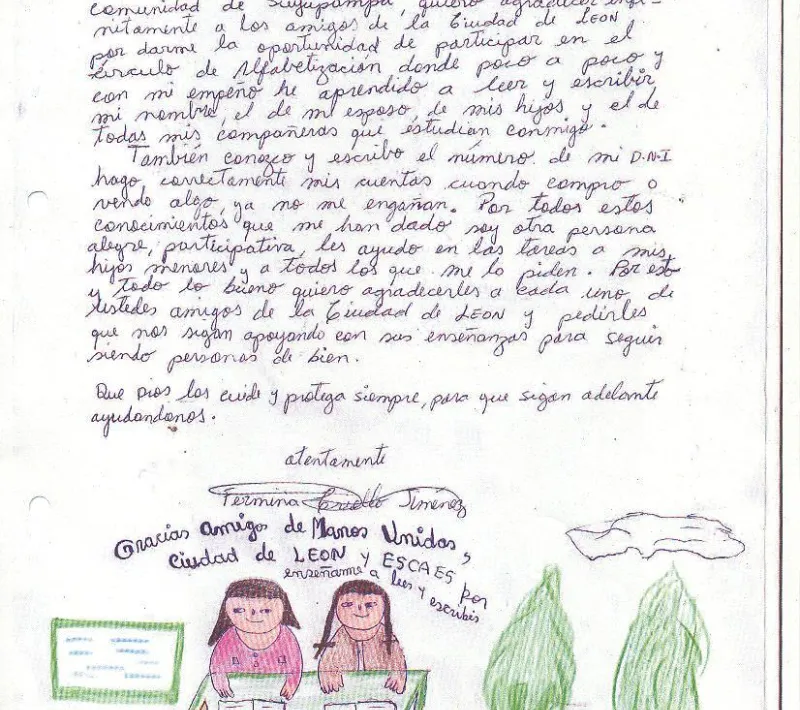 comunidad de Suyupampa, quiero agradecer infi-
nitamente a los amigos de la Ciudad de LEON
por darme la oportunidad de participar en el
círculo de Alfabetización donde poco a poco y
con mi empeño he aprendido a leer y escribir
mi nombre, el de mi esposo, de mis hijos y el de
todas mis compañeras que estudian conmigo.
También conozco y escribo el número de mi D.N.I
hago correctamente mis cuentas cuando compro o
vendo algo, ya no me engañan. Por todos estos
conocimientos que me han dado soy otra persona
alegre, participativa, les ayudo en las tareas a mis
hijos menores y a todos los que me lo piden. Por esto
y todo lo bueno quiero agradecerles a cada uno de
Ustedes amigos de la Ciudad de LEON y pedirles
que nos sigan apoyando con sus enseñanzas para seguir
siendo personas de bien.
Que Dios los cuide y protega siempre, para que sigan adelante
ayudandonos.
atentamente
Fermina Jiménez
Gracias amigos de Manos Unidas,
Ciudad de LEON y ESCAES por
enseñarme a leer y escribir